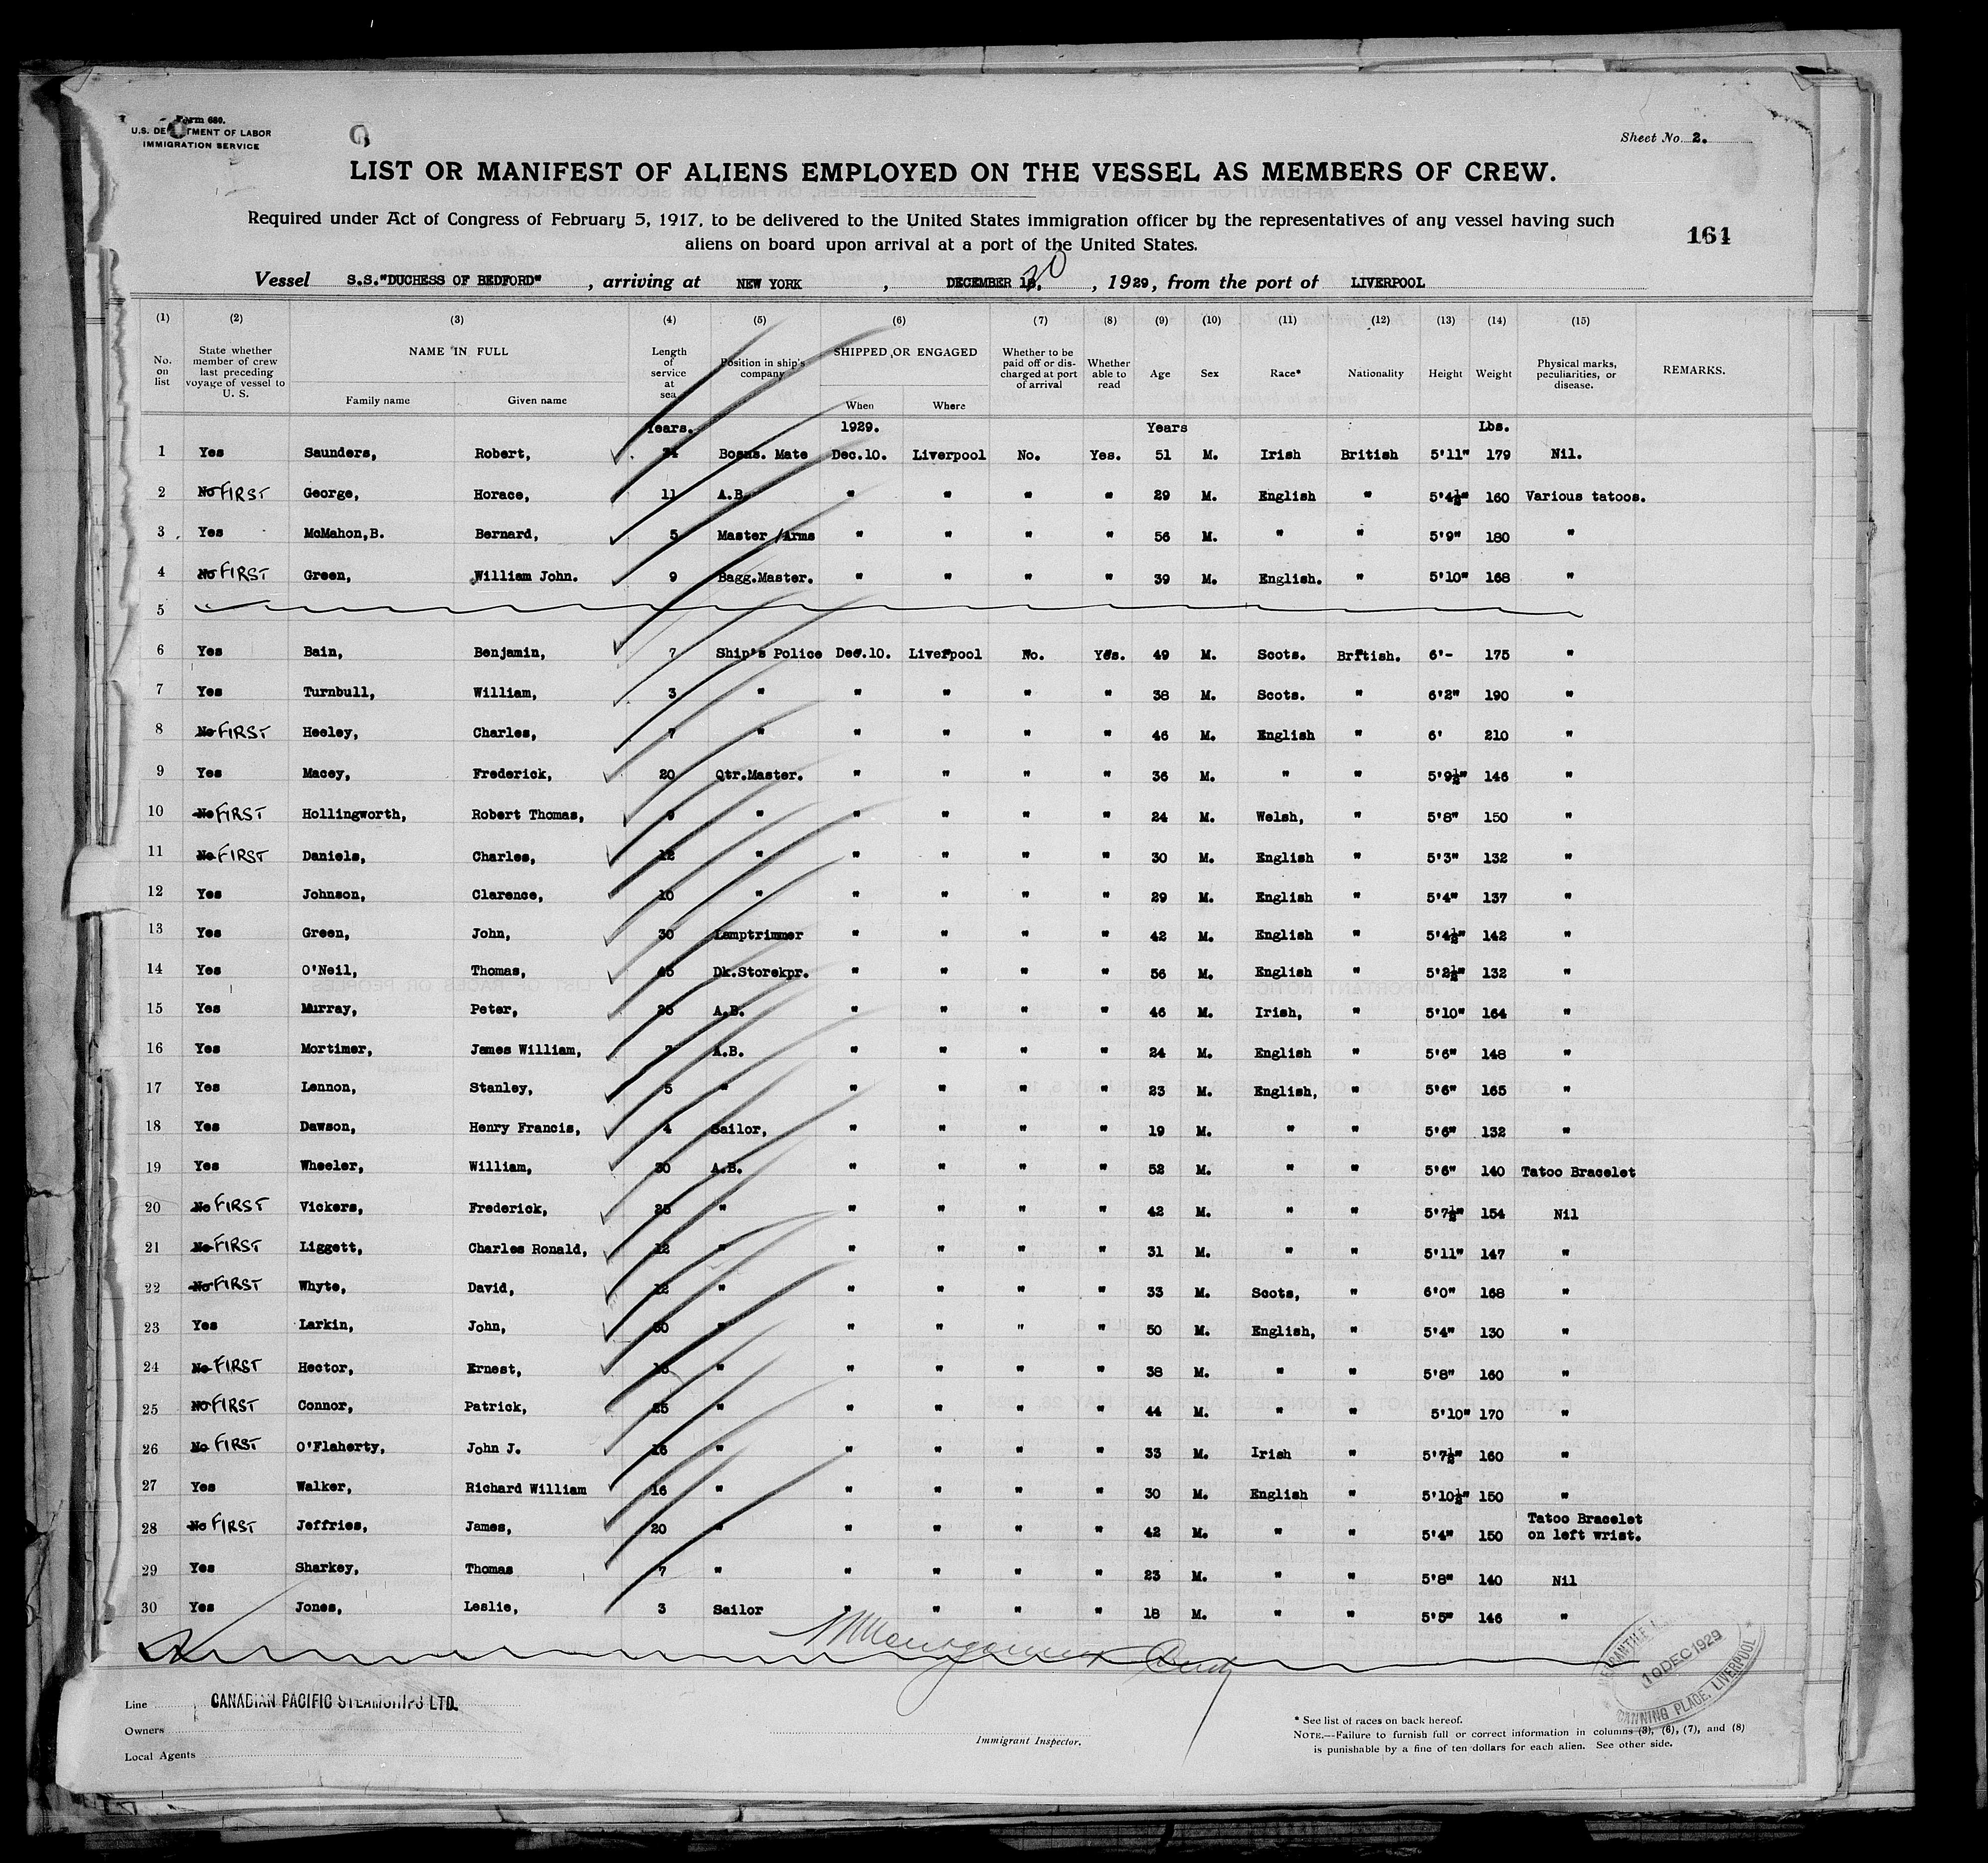 Form 680.
U.S. DEPARTMENT OF LABOR
IMMIGRATION SERVICE
Sheet No. 2.
LIST OR MANIFEST OF ALIENS EMPLOYED ON THE VESSEL AS MEMBERS OF CREW.
Required under Act of Congress of February 5, 1917, to be delivered to the United States immigration officer by the representatives of any vessel having such
aliens on board upon arrival at a port of the United States.
161
Vessel S.S."DUCHESS OF BEDFORD" , arriving at NEW YORK , DECEMBER 20 , 1929, from the port of LIVERPOOL
(1) (2) (3) (4) (5) (6) (7) (8) (9) (10) (11) (12) (13) (14) (15)
No. on list State whether member of crew last preceding voyage of vessel to U. S. NAME IN FULL Family name Given name Length of service at sea Position in ship's company SHIPPED OR ENGAGED When Where Whether to be paid off or discharged at port of arrival Whether able to read Age Sex Race* Nationality Height Weight Physical marks, peculiarities, or disease. REMARKS.
Years. 1929. Years Lbs.
1 Yes Saunders, Robert, Bosns. Mate Dec.10. Liverpool No. Yes. 51 M. Irish British 5'11" 179 Nil.
2 No FIRST George, Horace, 11 A.B. " " " " 29 M. English " 5'4½" 160 Various tatoos.
3 Yes McMahon,B. Bernard, 5 Master/Arms " " " " 56 M. " " 5'9" 180 "
4 No FIRST Green, William John. 9 Bagg.Master. " " " " 39 M. English. " 5'10" 168 "
5
6 Yes Bain, Benjamin, 7 Ship's Police Dec.10. Liverpool No. Yes. 49 M. Scots. British. 6'- 175 "
7 Yes Turnbull, William, 3 " " " " " 38 M. Scots. " 6'2" 190 "
8 No FIRST Heeley, Charles, 7 " " " " " 46 M. English " 6' 210 "
9 Yes Macey, Frederick, 20 Qtr.Master. " " " " 36 M. " " 5'9½" 146 "
10 No FIRST Hollingworth, Robert Thomas, 9 " " " " " 24 M. Welsh, " 5'8" 150 "
11 No FIRST Daniels, Charles, 12 " " " " " 30 M. English " 5'3" 132 "
12 Yes Johnson, Clarence, 10 " " " " " 29 M. English " 5'4" 137 "
13 Yes Green, John, 30 Lamptrimmer " " " " 42 M. English " 5'4½" 142 "
14 Yes O'Neil, Thomas, 45 Dk.Storekpr. " " " " 56 M. English " 5'2½" 132 "
15 Yes Murray, Peter, A.B. " " " " 46 M. Irish, " 5'10" 164 "
16 Yes Mortimer, James William, 7 A.B. " " " " 24 M. English " 5'6" 148 "
17 Yes Lennon, Stanley, 5 " " " " " 23 M. English, " 5'6" 165 "
18 Yes Dawson, Henry Francis, 4 Sailor, " " " " 19 M. " " 5'6" 132 "
19 Yes Wheeler, William, 30 A.B. " " " " 52 M. " " 5'6" 140 Tatoo Bracelet
20 No FIRST Vickers, Frederick, 25 " " " " " 42 M. " " 5'7½" 154 Nil
21 No FIRST Liggett, Charles Ronald, 12 " " " " " 31 M. " " 5'11" 147 "
22 No FIRST Whyte, David, 12 " " " " " 33 M. Scots, " 6'0" 168 "
23 Yes Larkin, John, " " " " " 50 M. English, " 5'4" 130 "
24 No FIRST Hector, Ernest, " " " " " 38 M. " " 5'8" 160 "
25 No FIRST Connor, Patrick, 25 " " " " " 44 M. " " 5'10" 170 "
26 No FIRST O'Flaherty, John J. 16 " " " " " 33 M. Irish " 5'7½" 160 "
27 Yes Walker, Richard William 16 " " " " " 30 M. English " 5'10½" 150 "
28 No FIRST Jeffries, James, 20 " " " " " 42 M. " " 5'4" 150 Tatoo Bracelet on left wrist.
29 Yes Sharkey, Thomas 7 " " " " " 23 M. " " 5'8" 140 Nil
30 Yes Jones, Leslie, 3 Sailor " " " " 18 M. " " 5'5" 146 "
10 DEC 1929
CANNING PLACE, LIVERPOOL
Line CANADIAN PACIFIC STEAMSHIPS LTD.
Owners
Local Agents
Immigrant Inspector.
* See list of races on back hereof.
NOTE.—Failure to furnish full or correct information in columns (3), (6), (7), and (8)
is punishable by a fine of ten dollars for each alien. See other side.